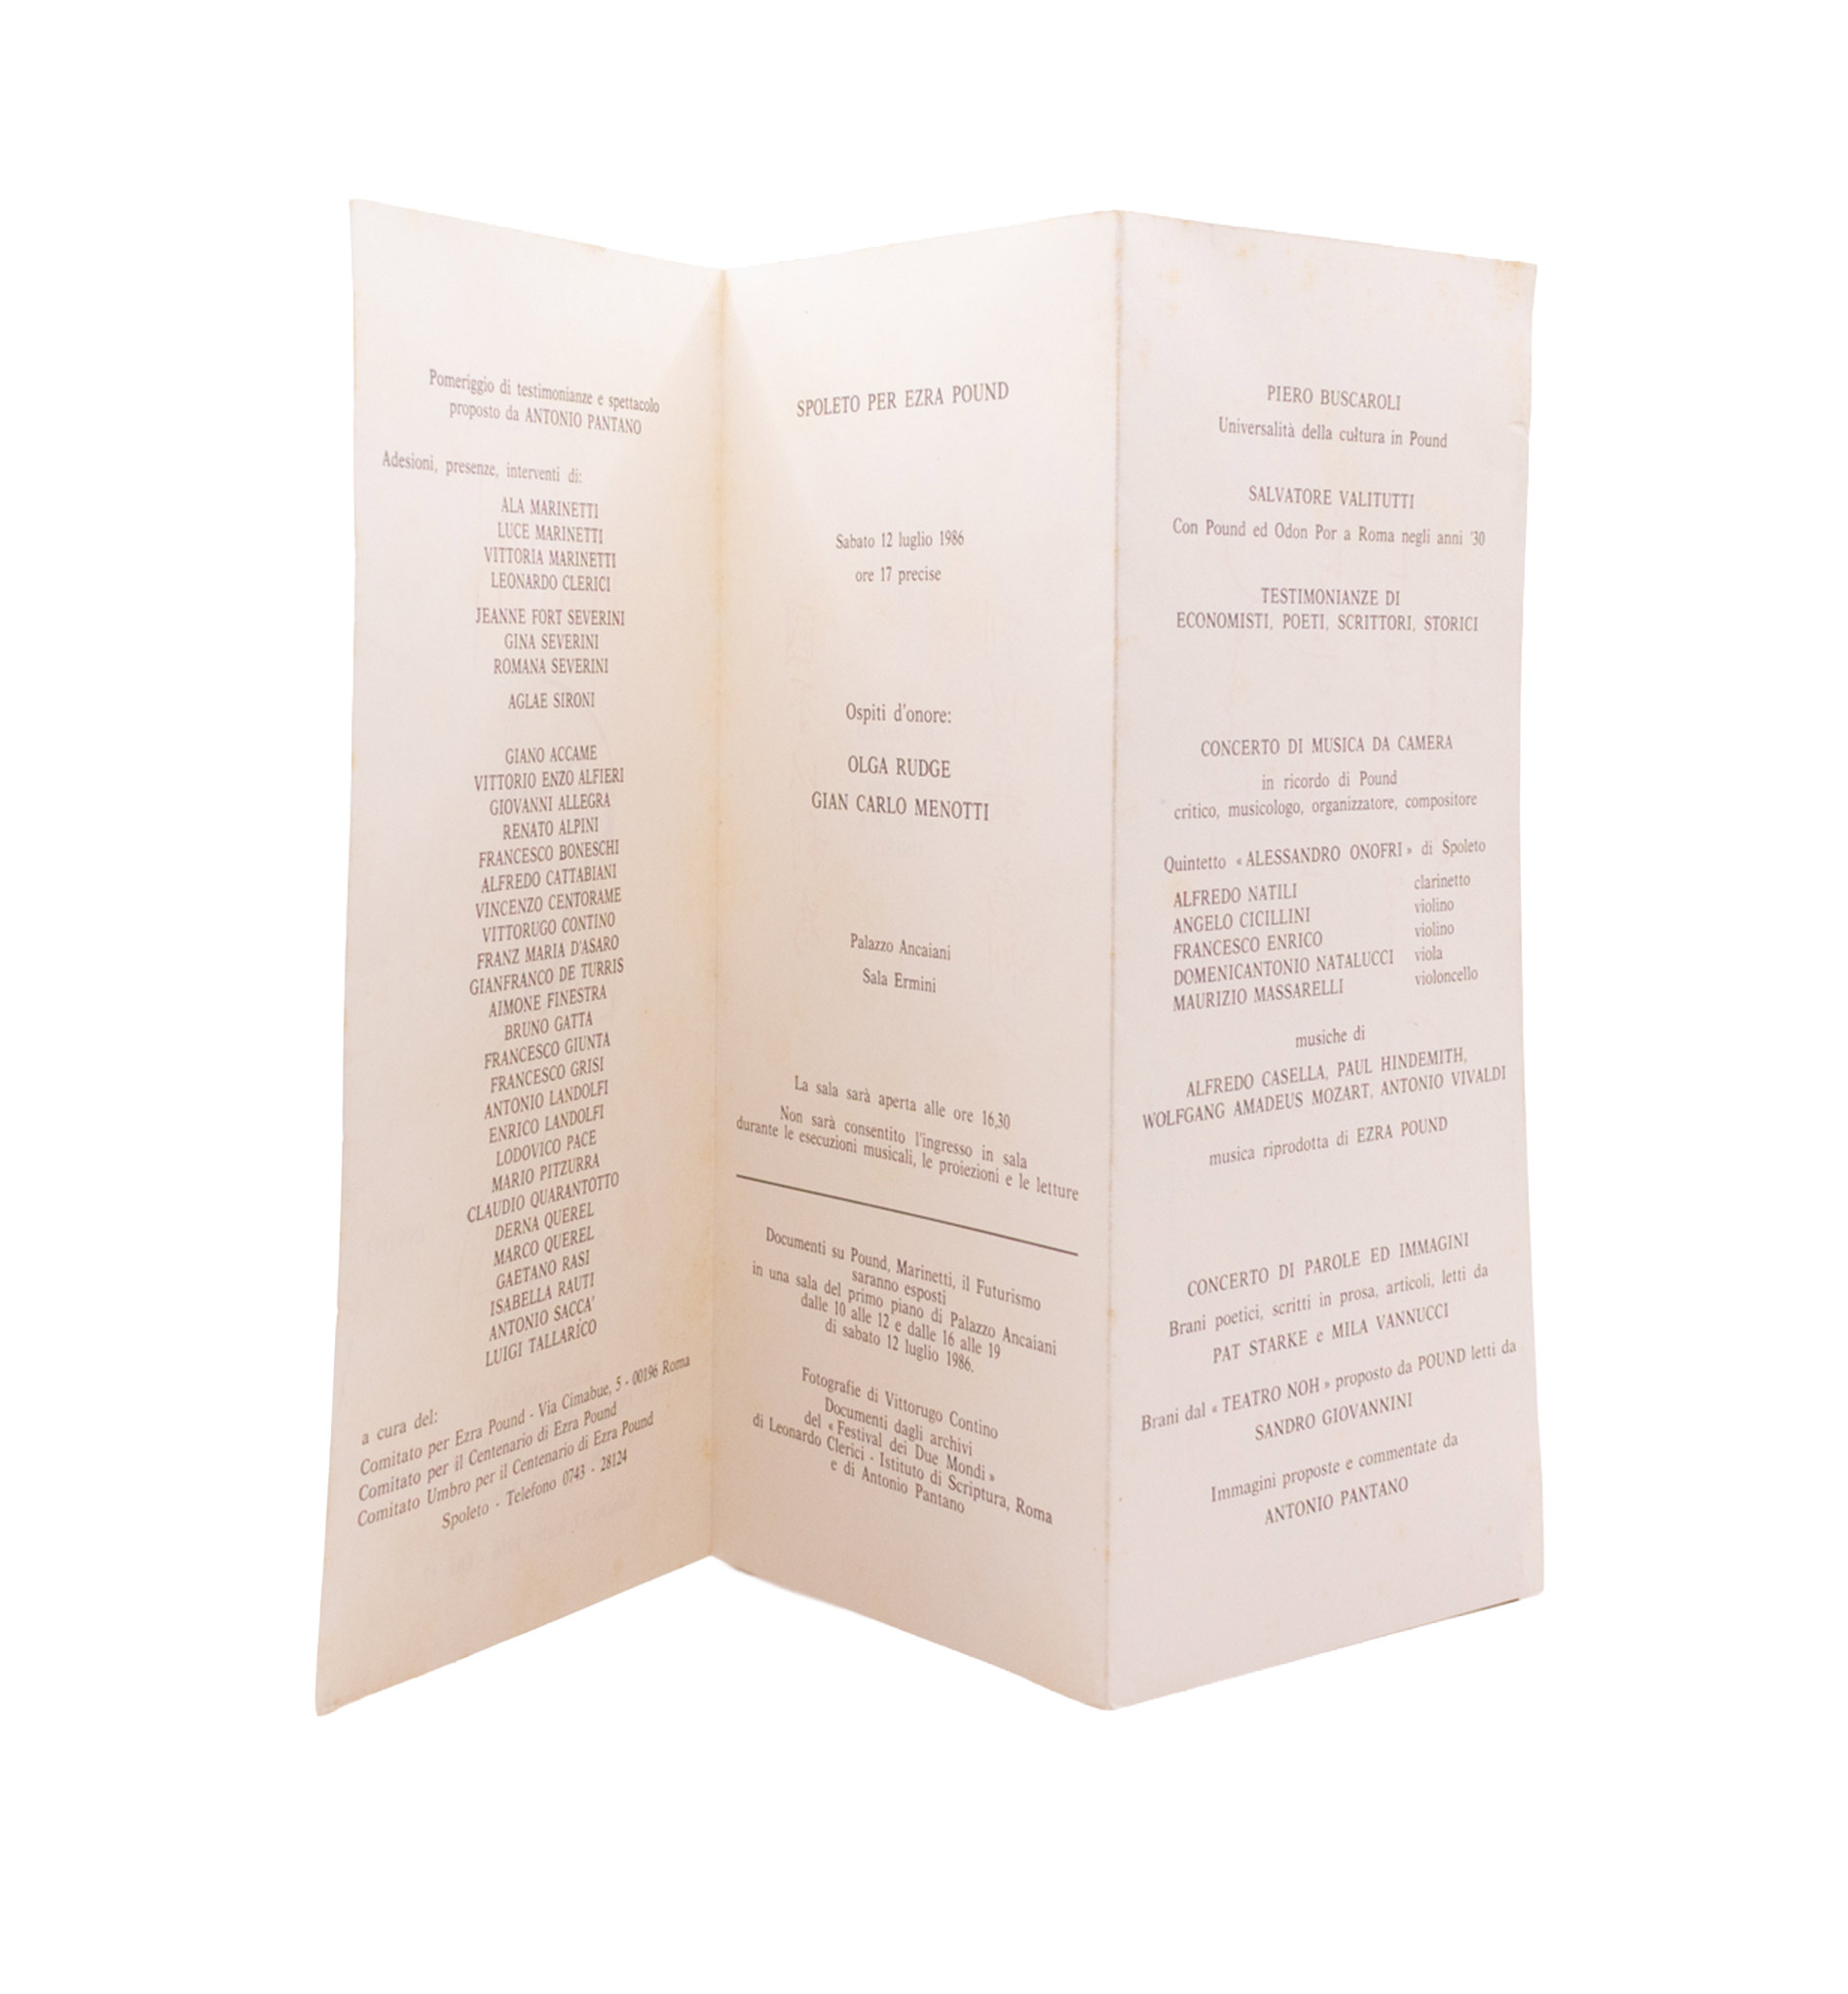 Pomeriggio di testimonianze e spettacolo
proposto da ANTONIO PANTANO
Adesioni, presenze, interventi di:
ALA MARINETTI
LUCE MARINETTI
VITTORIA MARINETTI
LEONARDO CLERICI
JEANNE FORT SEVERINI
GINA SEVERINI
ROMANA SEVERINI
AGLAE SIRONI
GIANO ACCAME
VITTORIO ENZO ALFIERI
GIOVANNI ALLEGRA
RENATO ALPINI
FRANCESCO BONESCHI
ALFREDO CATTABIANI
VINCENZO CENTORAME
VITTORUGO CONTINO
FRANZ MARIA D'ASARO
GIANFRANCO DE TURRIS
AIMONE FINESTRA
BRUNO GATTA
FRANCESCO GIUNTA
FRANCESCO GRISI
ANTONIO LANDOLFI
ENRICO LANDOLFI
LODOVICO PACE
MARIO PITZURRA
CLAUDIO QUARANTOTTO
DERNA QUEREL
MARCO QUEREL
GAETANO RASI
ISABELLA RAUTI
ANTONIO SACCA'
LUIGI TALLARICO
a cura del:
Comitato per Ezra Pound - Via Cimabue, 5 - 00196 Roma
Comitato per il Centenario di Ezra Pound
Comitato Umbro per il Centenario di Ezra Pound
Spoleto - Telefono 0743 - 28124
SPOLETO PER EZRA POUND
Sabato 12 luglio 1986
ore 17 precise
Ospiti d'onore:
OLGA RUDGE
GIAN CARLO MENOTTI
Palazzo Ancaiani
Sala Ermini
La sala sarà aperta alle ore 16,30
Non sarà consentito l'ingresso in sala
durante le esecuzioni musicali, le proiezioni e le letture
Documenti su Pound, Marinetti, il Futurismo
saranno esposti
in una sala del primo piano di Palazzo Ancaiani
dalle 10 alle 12 e dalle 16 alle 19
di sabato 12 luglio 1986.
Fotografie di Vittorugo Contino
Documenti dagli archivi
del « Festival dei Due Mondi »
di Leonardo Clerici - Istituto di Scriptura, Roma
e di Antonio Pantano
PIERO BUSCAROLI
Universalità della cultura in Pound
SALVATORE VALITUTTI
Con Pound ed Odon Por a Roma negli anni '30
TESTIMONIANZE DI
ECONOMISTI, POETI, SCRITTORI, STORICI
CONCERTO DI MUSICA DA CAMERA
in ricordo di Pound
critico, musicologo, organizzatore, compositore
Quintetto « ALESSANDRO ONOFRI » di Spoleto
ALFREDO NATILI clarinetto
ANGELO CICILLINI violino
FRANCESCO ENRICO violino
DOMENICANTONIO NATALUCCI viola
MAURIZIO MASSARELLI violoncello
musiche di
ALFREDO CASELLA, PAUL HINDEMITH,
WOLFGANG AMADEUS MOZART, ANTONIO VIVALDI
musica riprodotta di EZRA POUND
CONCERTO DI PAROLE ED IMMAGINI
Brani poetici, scritti in prosa, articoli, letti da
PAT STARKE e MILA VANNUCCI
Brani dal « TEATRO NOH » proposto da POUND letti da
SANDRO GIOVANNINI
Immagini proposte e commentate da
ANTONIO PANTANO